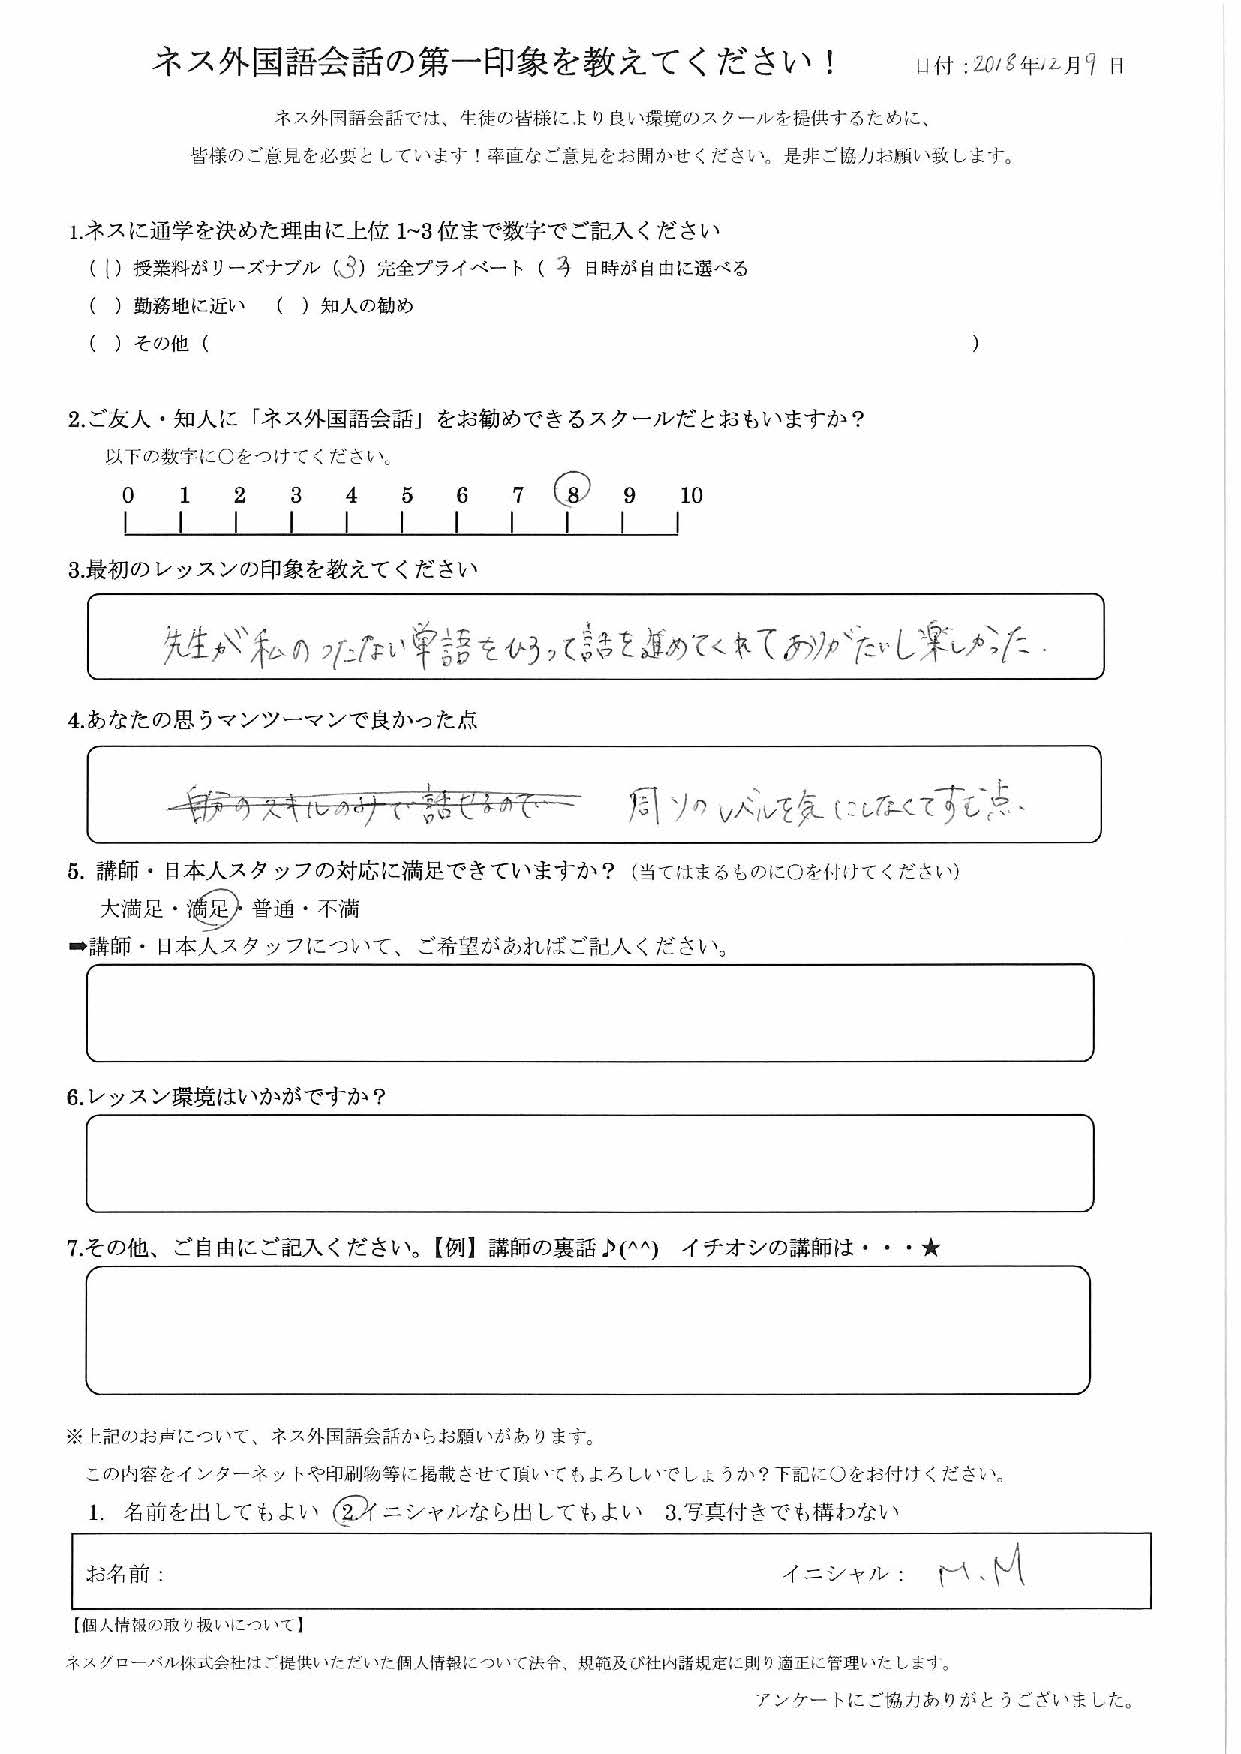 ネス外国語会話の第一印象を教えてください！
日付：2018年12月9日
ネス外国語会話では、生徒の皆様により良い環境のスクールを提供するために、
皆様のご意見を必要としています！率直なご意見をお聞かせください。是非ご協力お願い致します。
1.ネスに通学を決めた理由に上位 1~3 位まで数字でご記入ください
（1）授業料がリーズナブル（3）完全プライベート（ 日時が自由に選べる
（ ）勤務地に近い （ ）知人の勧め
（ ）その他（ ）
2.ご友人・知人に「ネス外国語会話」をお勧めできるスクールだとおもいますか？
以下の数字に〇をつけてください。
0 1 2 3 4 5 6 7 8 9 10
3.最初のレッスンの印象を教えてください
先生が私のつたない単語をひろって話を進めてくれてありがたいし楽しかった.
4.あなたの思うマンツーマンで良かった点
自分のスキルのみで話せるので 周りのレベルを気にしなくてすむ点、
5. 講師・日本人スタッフの対応に満足できていますか？（当てはまるものに〇を付けてください）
大満足・満足・普通・不満
➡講師・日本人スタッフについて、ご希望があればご記入ください。
6.レッスン環境はいかがですか？
7.その他、ご自由にご記入ください。【例】講師の裏話♪(^^) イチオシの講師は・・・★
※上記のお声について、ネス外国語会話からお願いがあります。
この内容をインターネットや印刷物等に掲載させて頂いてもよろしいでしょうか？下記に〇をお付けください。
1. 名前を出してもよい 2.イニシャルなら出してもよい 3.写真付きでも構わない
お名前： イニシャル： M.M
【個人情報の取り扱いについて】
ネスグローバル株式会社はご提供いただいた個人情報について法令、規範及び社内諸規定に則り適正に管理いたします。
アンケートにご協力ありがとうございました。